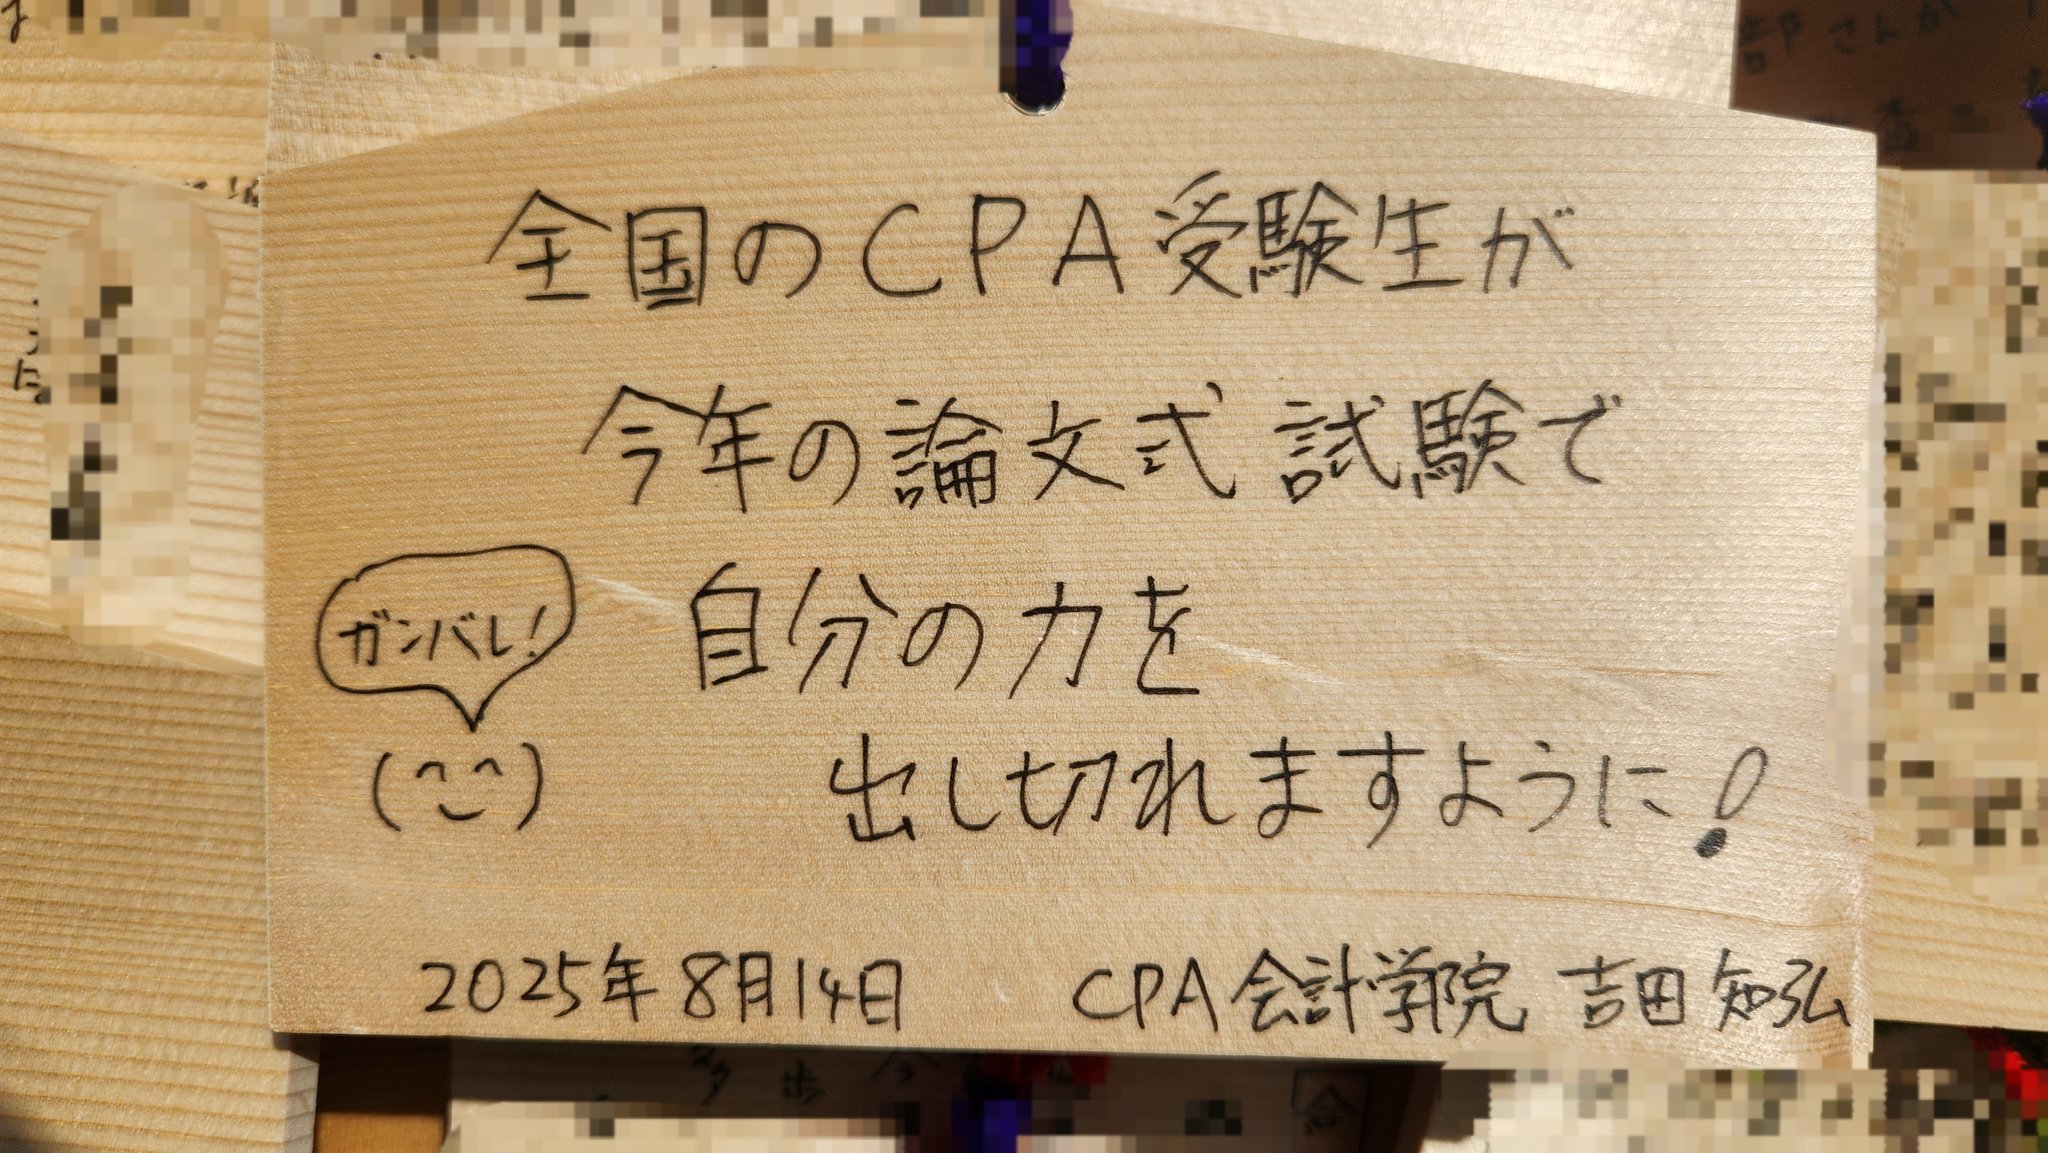 全国のCPA受験生が
今年の論文式試験で
自分の力を
出し切れますように!
ガンバレ!
(^‿^)
2025年8月14日 CPA会計学院 吉田 知弘
部さんが